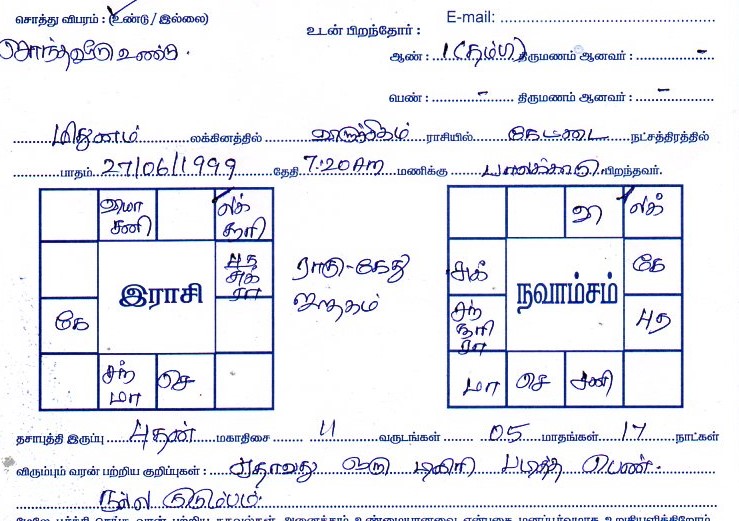 சொத்து விபரம் : (உண்டு / இல்லை)
சொந்தவீடு உண்டு.
உடன் பிறந்தோர் :
E-mail:
ஆண் : 1 (தம்பி) திருமணம் ஆனவர் : -
பெண் : - திருமணம் ஆனவர் : -
மிதுனம் லக்கினத்தில் விருச்சிகம் ராசியில் கேட்டை நட்சத்திரத்தில்
பாதம் 27/06/1999 தேதி 7.20AM மணிக்கு பிறந்தவர்.
சனி
லக்
சூரி
புத
சுக்
ரா
இராசி
கே
சந்
மா
செ
ராகு-கேது
ஜாதகம்
லக்
சுக்
கே
நவாம்சம்
சந்
சூரி
ரா
புத
மா
செ
சனி
தசாபுத்தி இருப்பு புதன் மகாதிசை 11 வருடங்கள் 05 மாதங்கள் 17 நாட்கள்
விரும்பும் வரன் பற்றிய குறிப்புகள் : ஏதாவது ஒரு டிகிரி படித்த பெண்.
நல்ல குடும்பம்